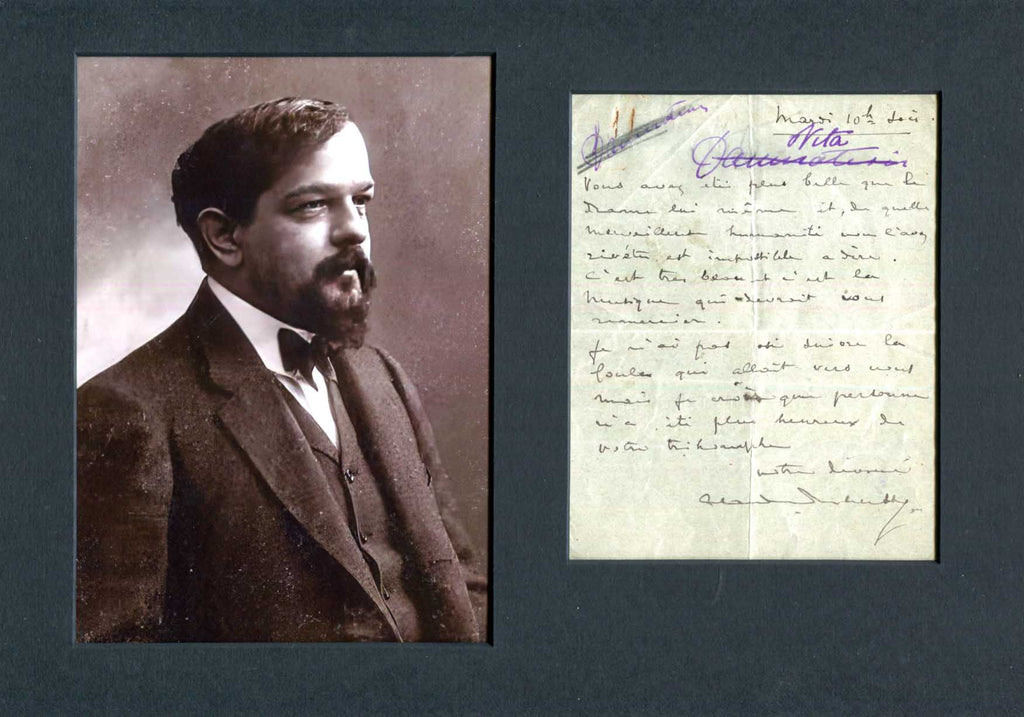 Mardi 10h soir.
Vita
Vous avez été plus belle que le
Drame lui même et, de quelle
merveilleuse humanité vous l'avez
revêtu, est impossible a dire.
C'est tres beau et c'est la
musique qui devrait vous
remercier.
Je n'ai pas osé suivre la
foule qui allait vers vous
mais je crois que personne
n'a été plus heureux de
votre triomphe
votre dévoué
Claude Debussy